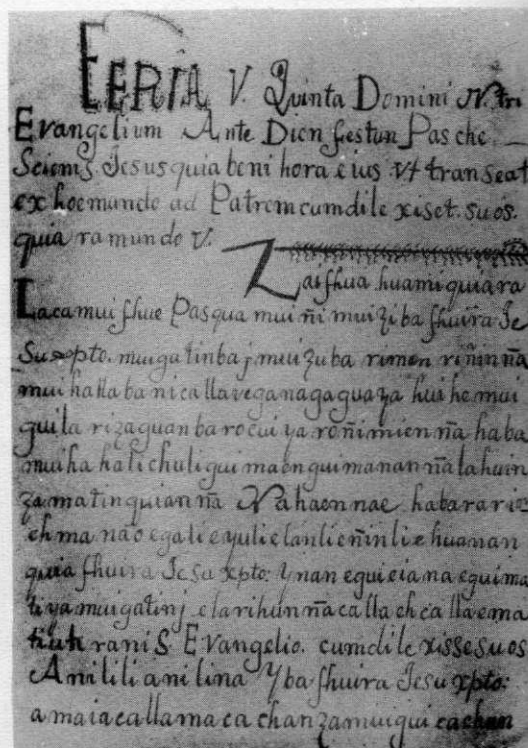 FERIA V. Quinta Domini Ntri
Evangelium Ante Dien festun Pasche
Sciems Jesus quia beni hora eius Vt transeat
ex hoc mundo ad Patrem cum dile xiset suos
quia ra mundo V.
Zaishua huamiquiara
Lacamuishue Pasqua mui ñi mui zi ba shuira Je
Su xpto. muigatinbaj mui zuba rimen riñin ña
mui hallabani calla vega nagaguaza hui he mui
guila rizaguanbarocui ya roñimien ña haba
mui ha hali chuli gui ma en guimanan ña la huin
zamatinquian ña Nahaennae habarari
ch ma nao egalie yulie lanlieñinlie huanan
quia shuira Jesu xpto: ynan eguieiana eguima
tiya muigatinj elarihunña calla ch calla ema
ranis Evangelio. cum dile xisse suos
Anilili anilina Yba shuira Jesu xpto:
amaiacallamaca chanzamuigui cachan